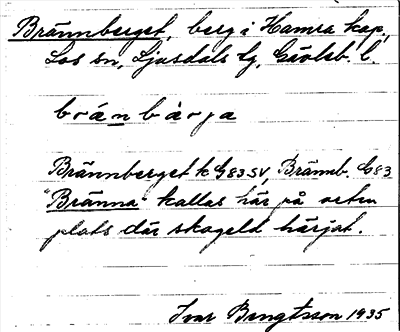 Brännberget, berg i Hamra kap.,
Los sn, Ljusdals tg, Gävleb. l.
bránbárja
Brännberget k G83SV, Brännb. G83
"Bränna" kallas här på orten
plats där skogeld härjat.
Ivar Bengtsson 1935